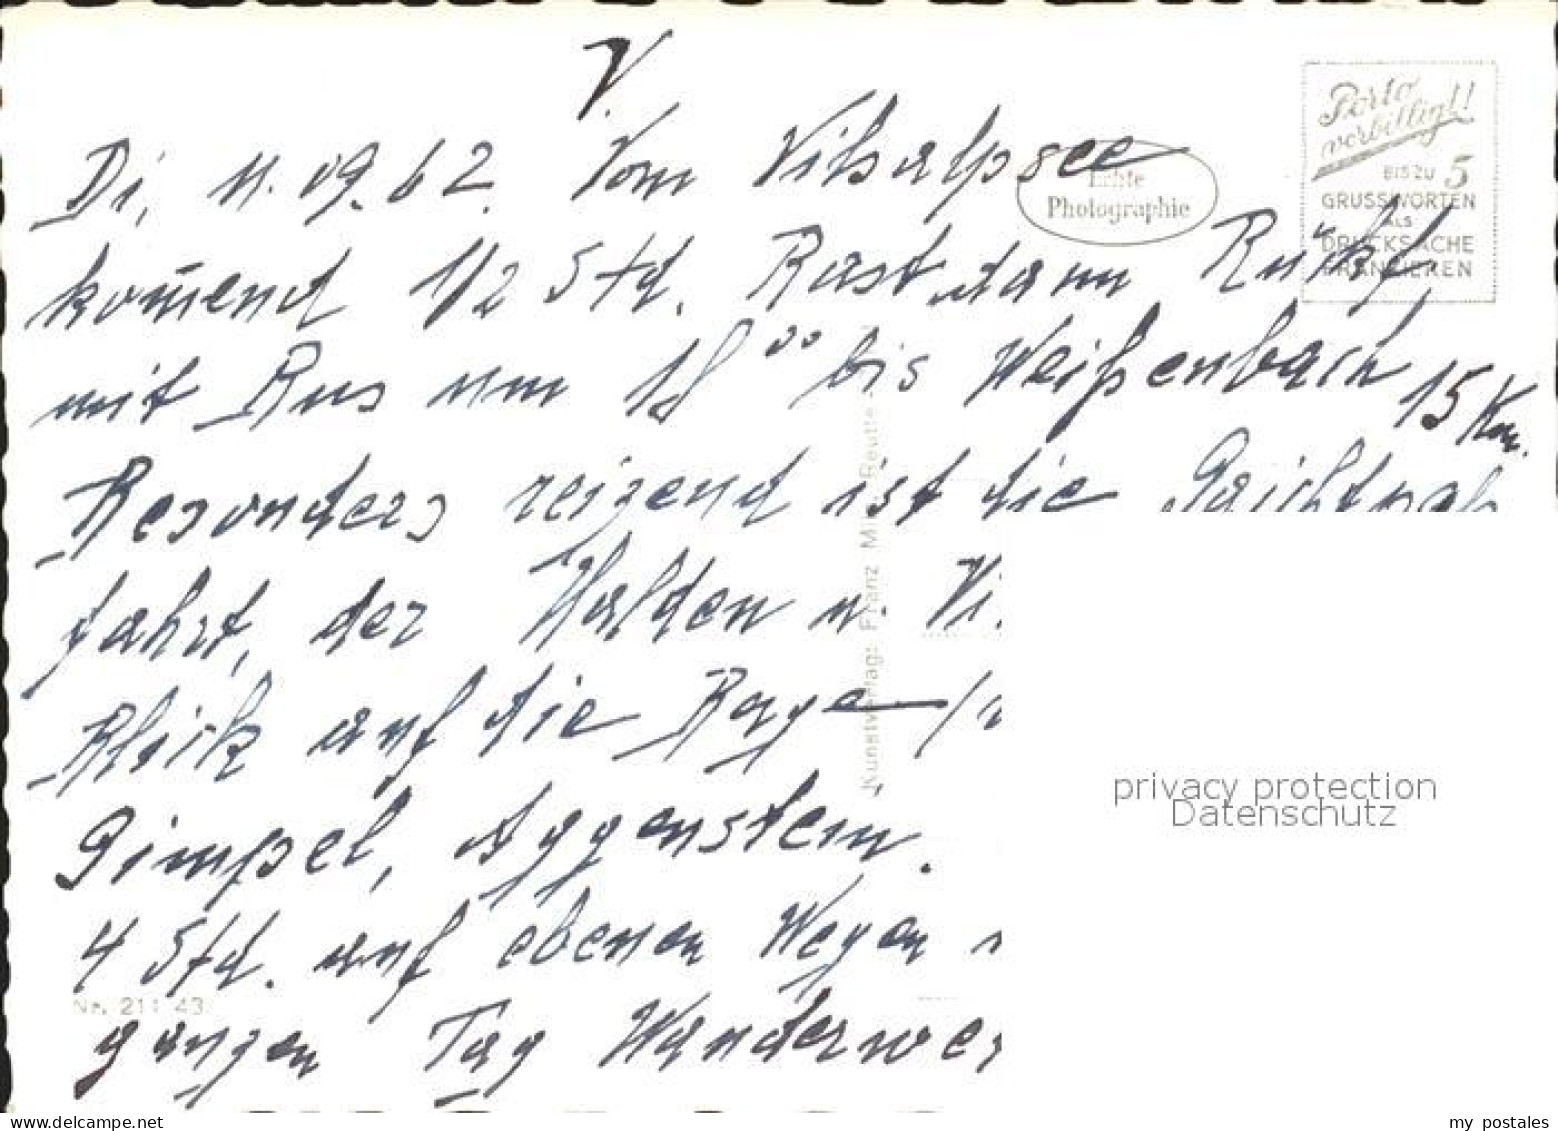 V.
Di, 11.09.62. Vom Vilsalpsee
kom̄end 1/2 Std. Rast, dann Rückf,
mit Bus um 18⁰⁰ bis Weißenbach 15 Km.
Besonders reizend ist die Gaichtpaß
fahrt, der Halden u. Vi
Blick auf die Rage
Gimpel, Aggenstein.
4 Std. auf ebenen Wegen
ganzen Tag Wanderwe
Echte
Photographie
Porto
verbillig!!
BIS ZU 5
GRUSSWORTEN
ALS
DRUCKSACHE
FRANKIEREN
Kunstverlag: Franz Reutte
Nr. 211 43
privacy protection
Datenschutz
hausdercollectionen.com
my postales